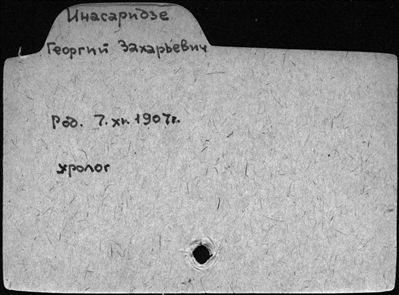 Инасаридзе
Георгий Захарьевич
Род. 7.XII.1907г.
уролог